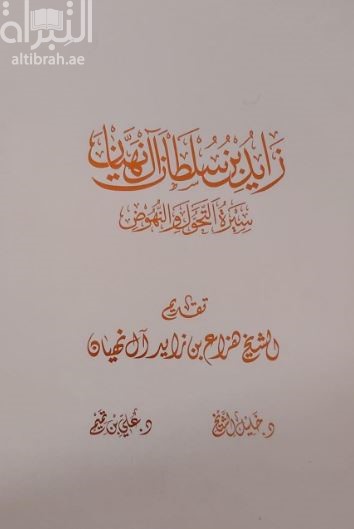 التبراة
altibrah.ae
زَايد بْن سُلطَان آل نهيَان
سِيرَة التَّحَوّل والنّهُوض
تقديم
الشيخ هزاع بن زايد آل نهيان
د. خليل الشيخ
د. علي بن تميم